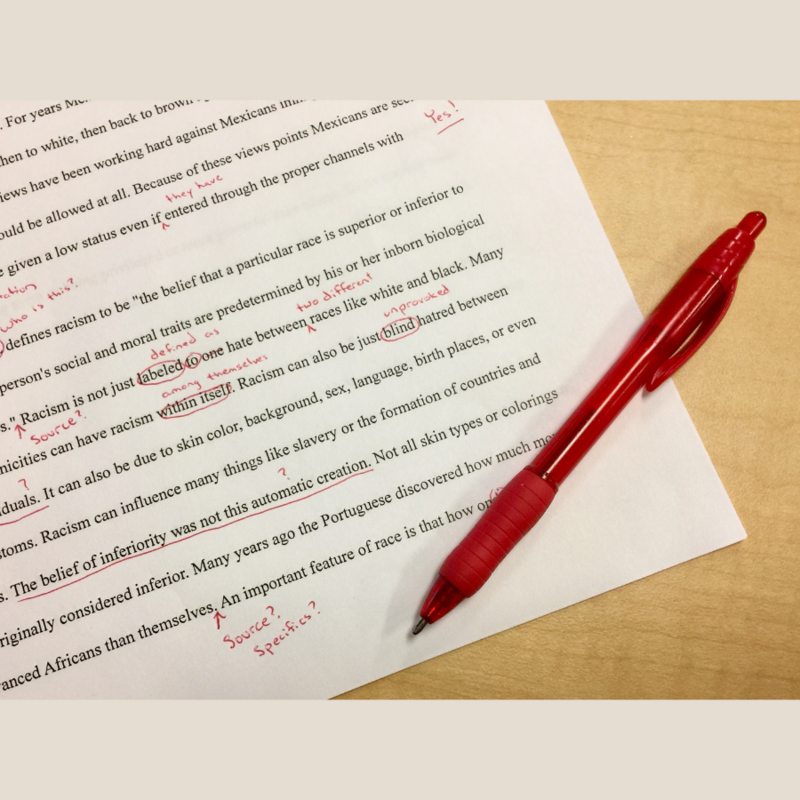 . For years
then to white, then back to brown
Yes!
iews have been working hard against Mexicans
ould be allowed at all. Because of these views points Mexicans are
they have
e given a low status even if entered through the proper channels with
who is this?
defines racism to be "the belief that a particular race is superior or inferior to
two different
person's social and moral traits are predetermined by his or her inborn biological
defined as
unprovoked
s." Racism is not just labeled to one hate between races like white and black. Many
Source?
among themselves
nicities can have racism within itself. Racism can also be just blind hatred between
?
duals. It can also be due to skin color, background, sex, language, birth places, or even
?
stoms. Racism can influence many things like slavery or the formation of countries and
s. The belief of inferiority was not this automatic creation. Not all skin types or colorings
riginally considered inferior. Many years ago the Portuguese discovered how much
anced Africans than themselves. An important feature of race is that how
Source?
Specifics?